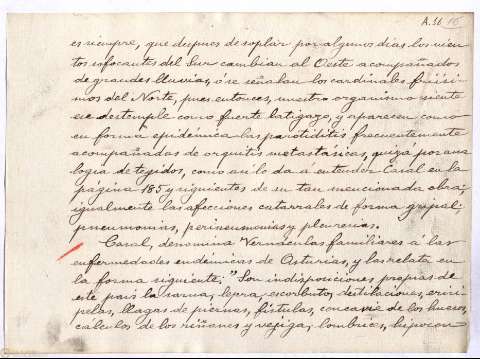 A. 16 16
es siempre, que despues de soplar por algunos dias los vien
tos sofocantes del Sur cambian al Oeste acompañados
de grandes lluvias, ó se señalan los cardinales friisi
mos del Norte, pues entonces, nuestro organismo siente
ese destemple como fuerte latigazo, y aparecen como
en forma epidémica las parotiditis frecuentemente
acompañadas de orquitis metastásicas, quizá por ana
logia de tegidos, como asi lo da á entender Casal en la
página 185 y siguientes de su tan mencionada obra;
igualmente las afecciones catarrales de forma gripal;
pneumonias, perineumonias y pleuresias.
Casal, denomina Vernáculas familiares á las
enfermedades endémicas de Asturias, y las relata en
la forma siguiente; "Son indisposiciones propias de
este pais la sarna, lepra, escorbuto, destilaciones, erisi
pelas, llagas de piernas, fístulas, concavie de los huesos,
cálculos de los riñones y vejiga, lombrices, hipocon